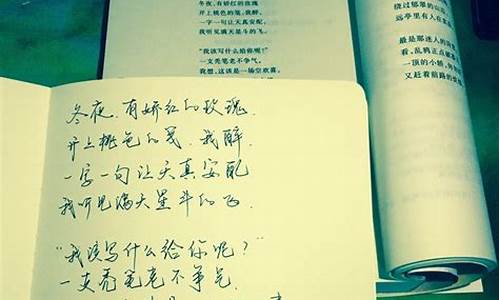 冬夜，有娇红的玫瑰
开上桃色的笺，我醉，
一字一句让天真安配
我听见满天星斗的飞。
“我该写什么给你呢？”
一支秃笔老不争气。
我想，这该是一场空欢喜。
绕过郁翠的山
远亭里有人在
最是那迷人的
看，乱鸦正点
一顶的小轿，
又赶着前路的
冬夜，有娇红的玫瑰
开上桃色的笺，我醉，
一字一句让天真安配
我听见满天星斗的飞。
“我该写什么给你呢？”
一支秃笔老不争气。